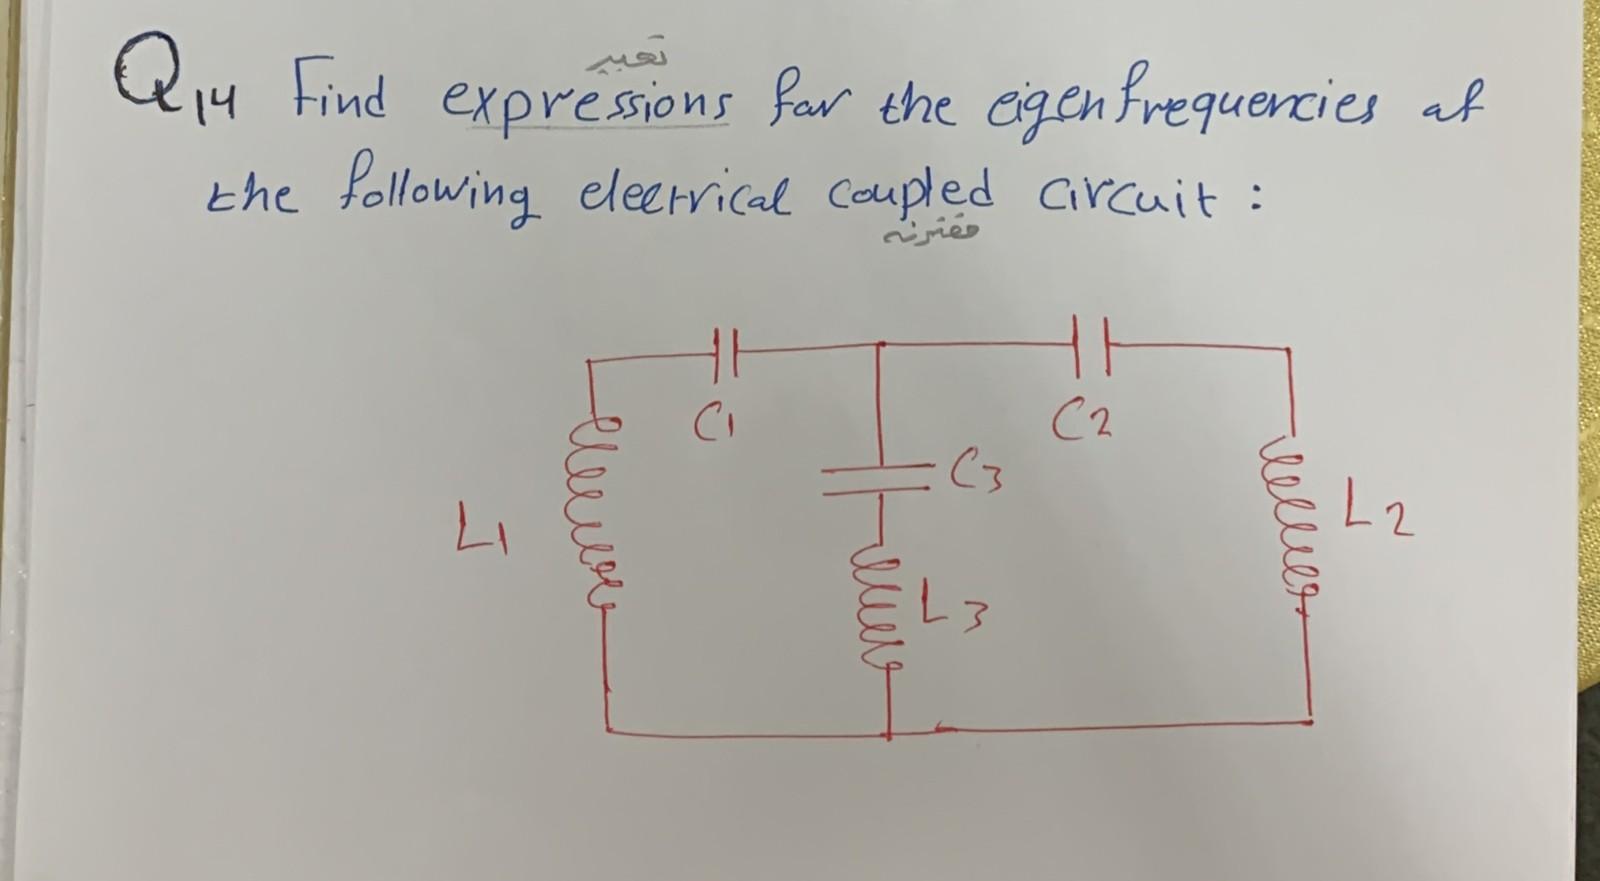 تعبير
Q14 Find expressions for the eigenfrequencies of
the following electrical coupled circuit :
مقترنه
C1
C2
C3
L1
L2
L3